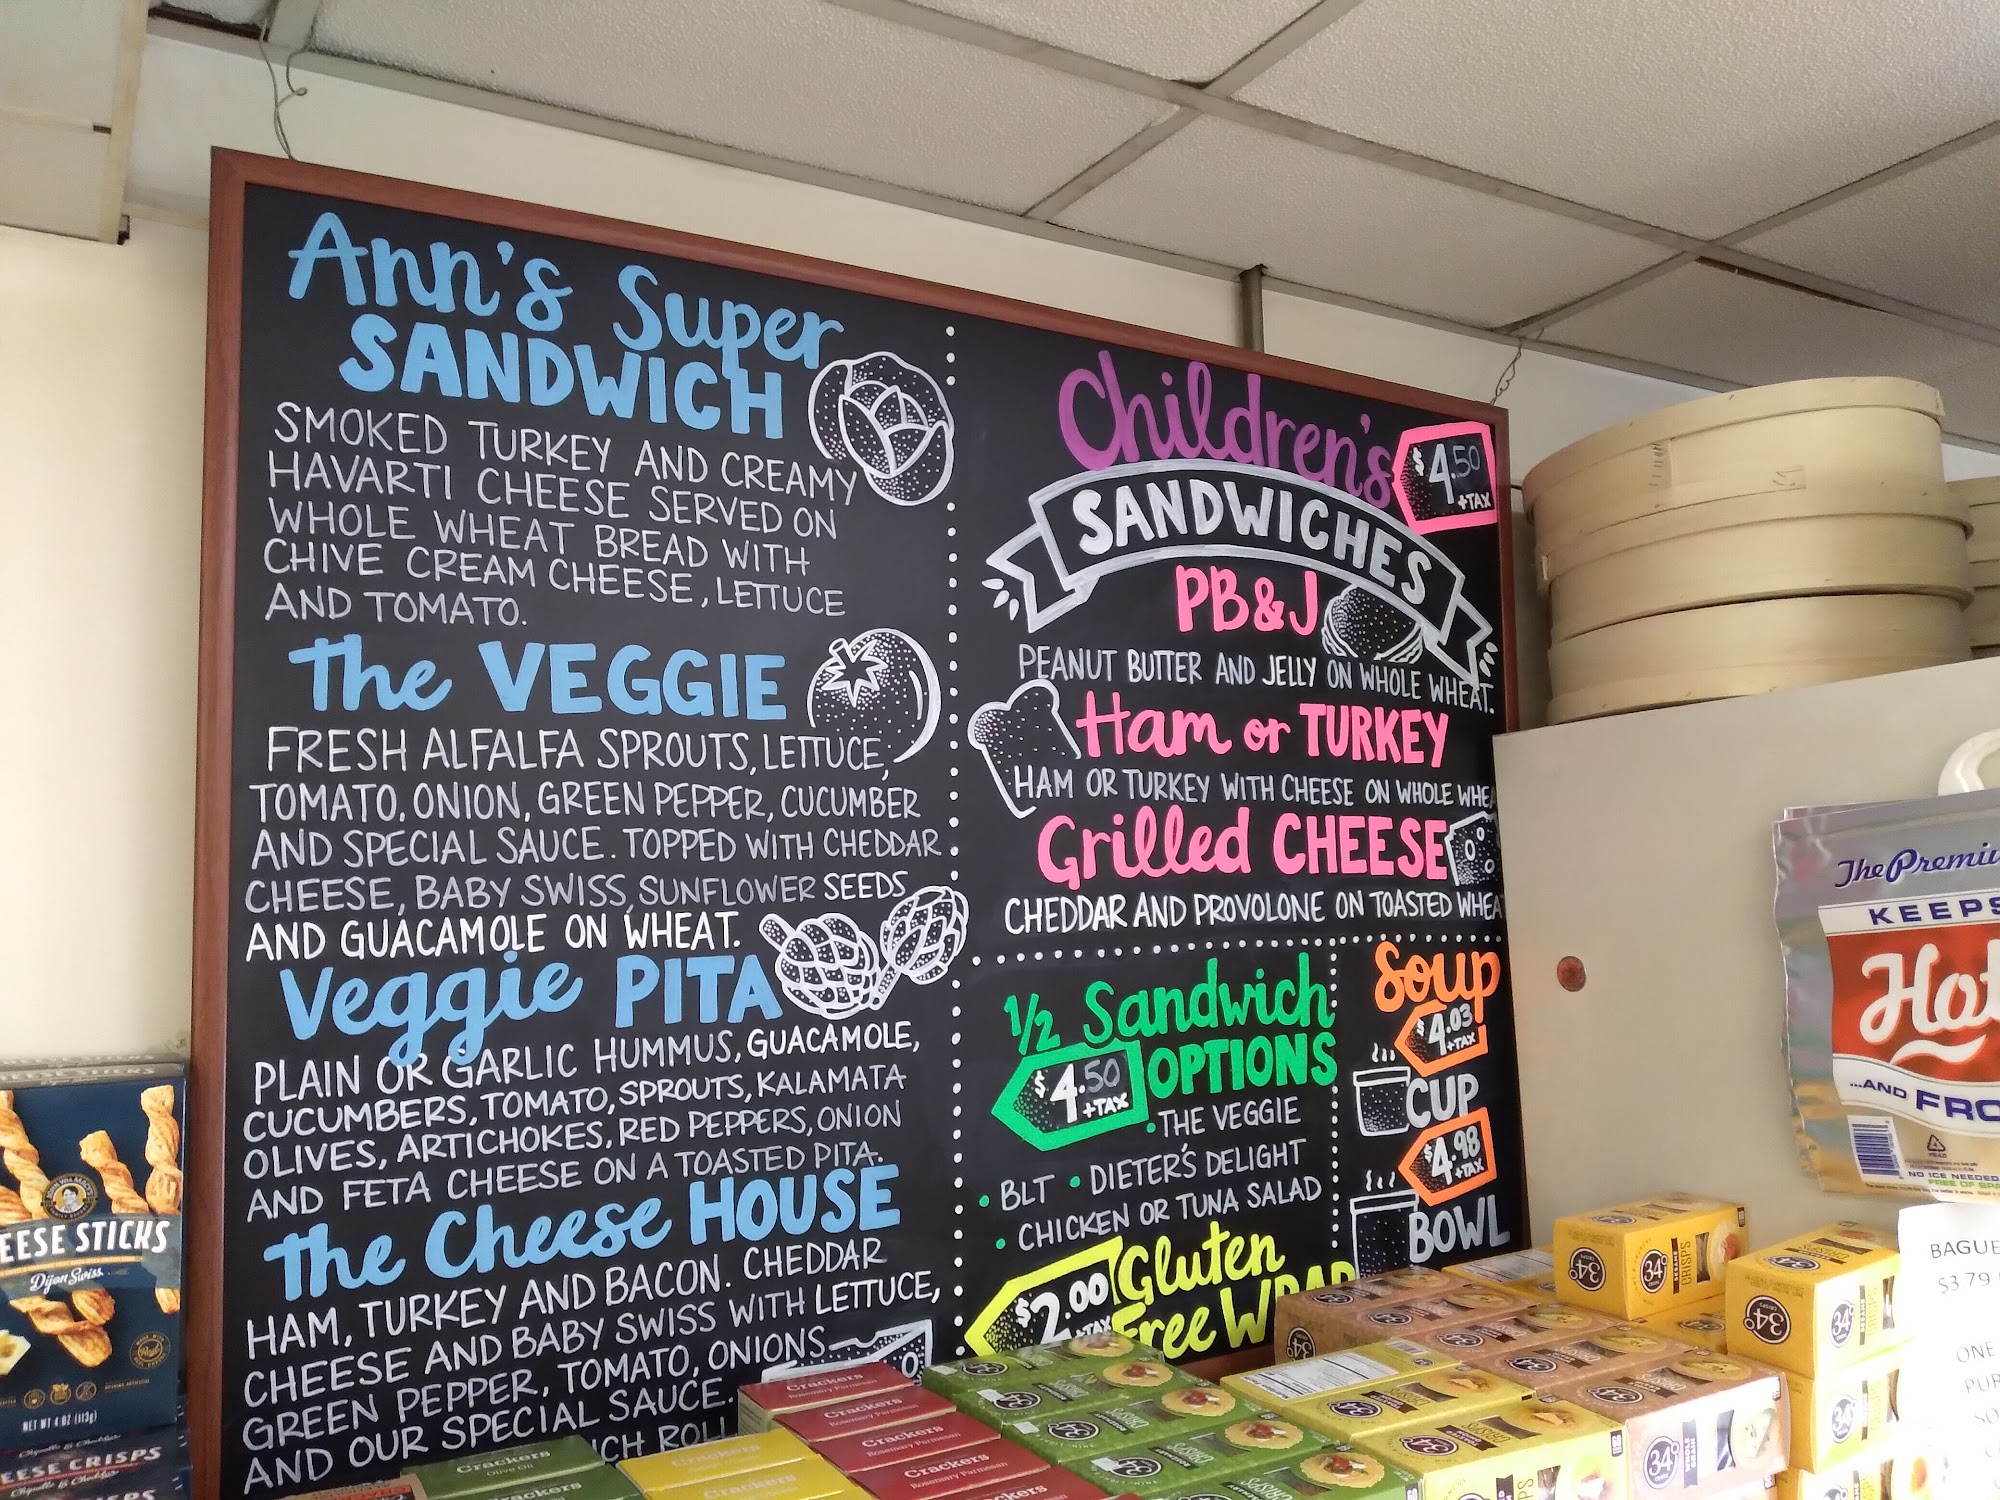 Ann's Super
SANDWICH
SMOKED TURKEY AND CREAMY
HAVARTI CHEESE SERVED ON
WHOLE WHEAT BREAD WITH
CHIVE CREAM CHEESE, LETTUCE
AND TOMATO.
the VEGGIE
FRESH ALFALFA SPROUTS, LETTUCE,
TOMATO, ONION, GREEN PEPPER, CUCUMBER
AND SPECIAL SAUCE. TOPPED WITH CHEDDAR
CHEESE, BABY SWISS, SUNFLOWER SEEDS
AND GUACAMOLE ON WHEAT.
Veggie PITA
PLAIN OR GARLIC HUMMUS, GUACAMOLE,
CUCUMBERS, TOMATO, SPROUTS, KALAMATA
OLIVES, ARTICHOKES, RED PEPPERS, ONION
AND FETA CHEESE ON A TOASTED PITA.
the Cheese HOUSE
HAM, TURKEY AND BACON. CHEDDAR
CHEESE AND BABY SWISS WITH LETTUCE,
GREEN PEPPER, TOMATO, ONIONS
AND OUR SPECIAL SAUCE.
CH ROLL
Children's
$4.50
+TAX
SANDWICHES
PB&J
PEANUT BUTTER AND JELLY ON WHOLE WHEAT.
Ham or TURKEY
HAM OR TURKEY WITH CHEESE ON WHOLE WHEA
Grilled CHEESE
CHEDDAR AND PROVOLONE ON TOASTED WHEA
1/2 Sandwich
OPTIONS
$4.50
+TAX
• THE VEGGIE
• BLT • DIETER'S DELIGHT
• CHICKEN OR TUNA SALAD
Gluten
Free WRAP
$2.00
+TAX
Soup
$4.03
+TAX
CUP
$4.98
+TAX
BOWL
EESE STICKS
Dijon Swiss
NET WT 4 OZ (113g)
EESE CRISPS
Crackers
Rosemary Parmesan
Crackers
Rosemary Parmesan
Crackers
Rosemary Parmesan
Crackers
Crackers
Olive Oil
Crackers
34°
CRISPS
34°
SESAME
CRISPS
34°
WHOLE GRAIN
The Premiu
KEEPS
Hot
...AND FRO
NO ICE NEEDED
BAGUE
$3.79
ONE
PUR
SO